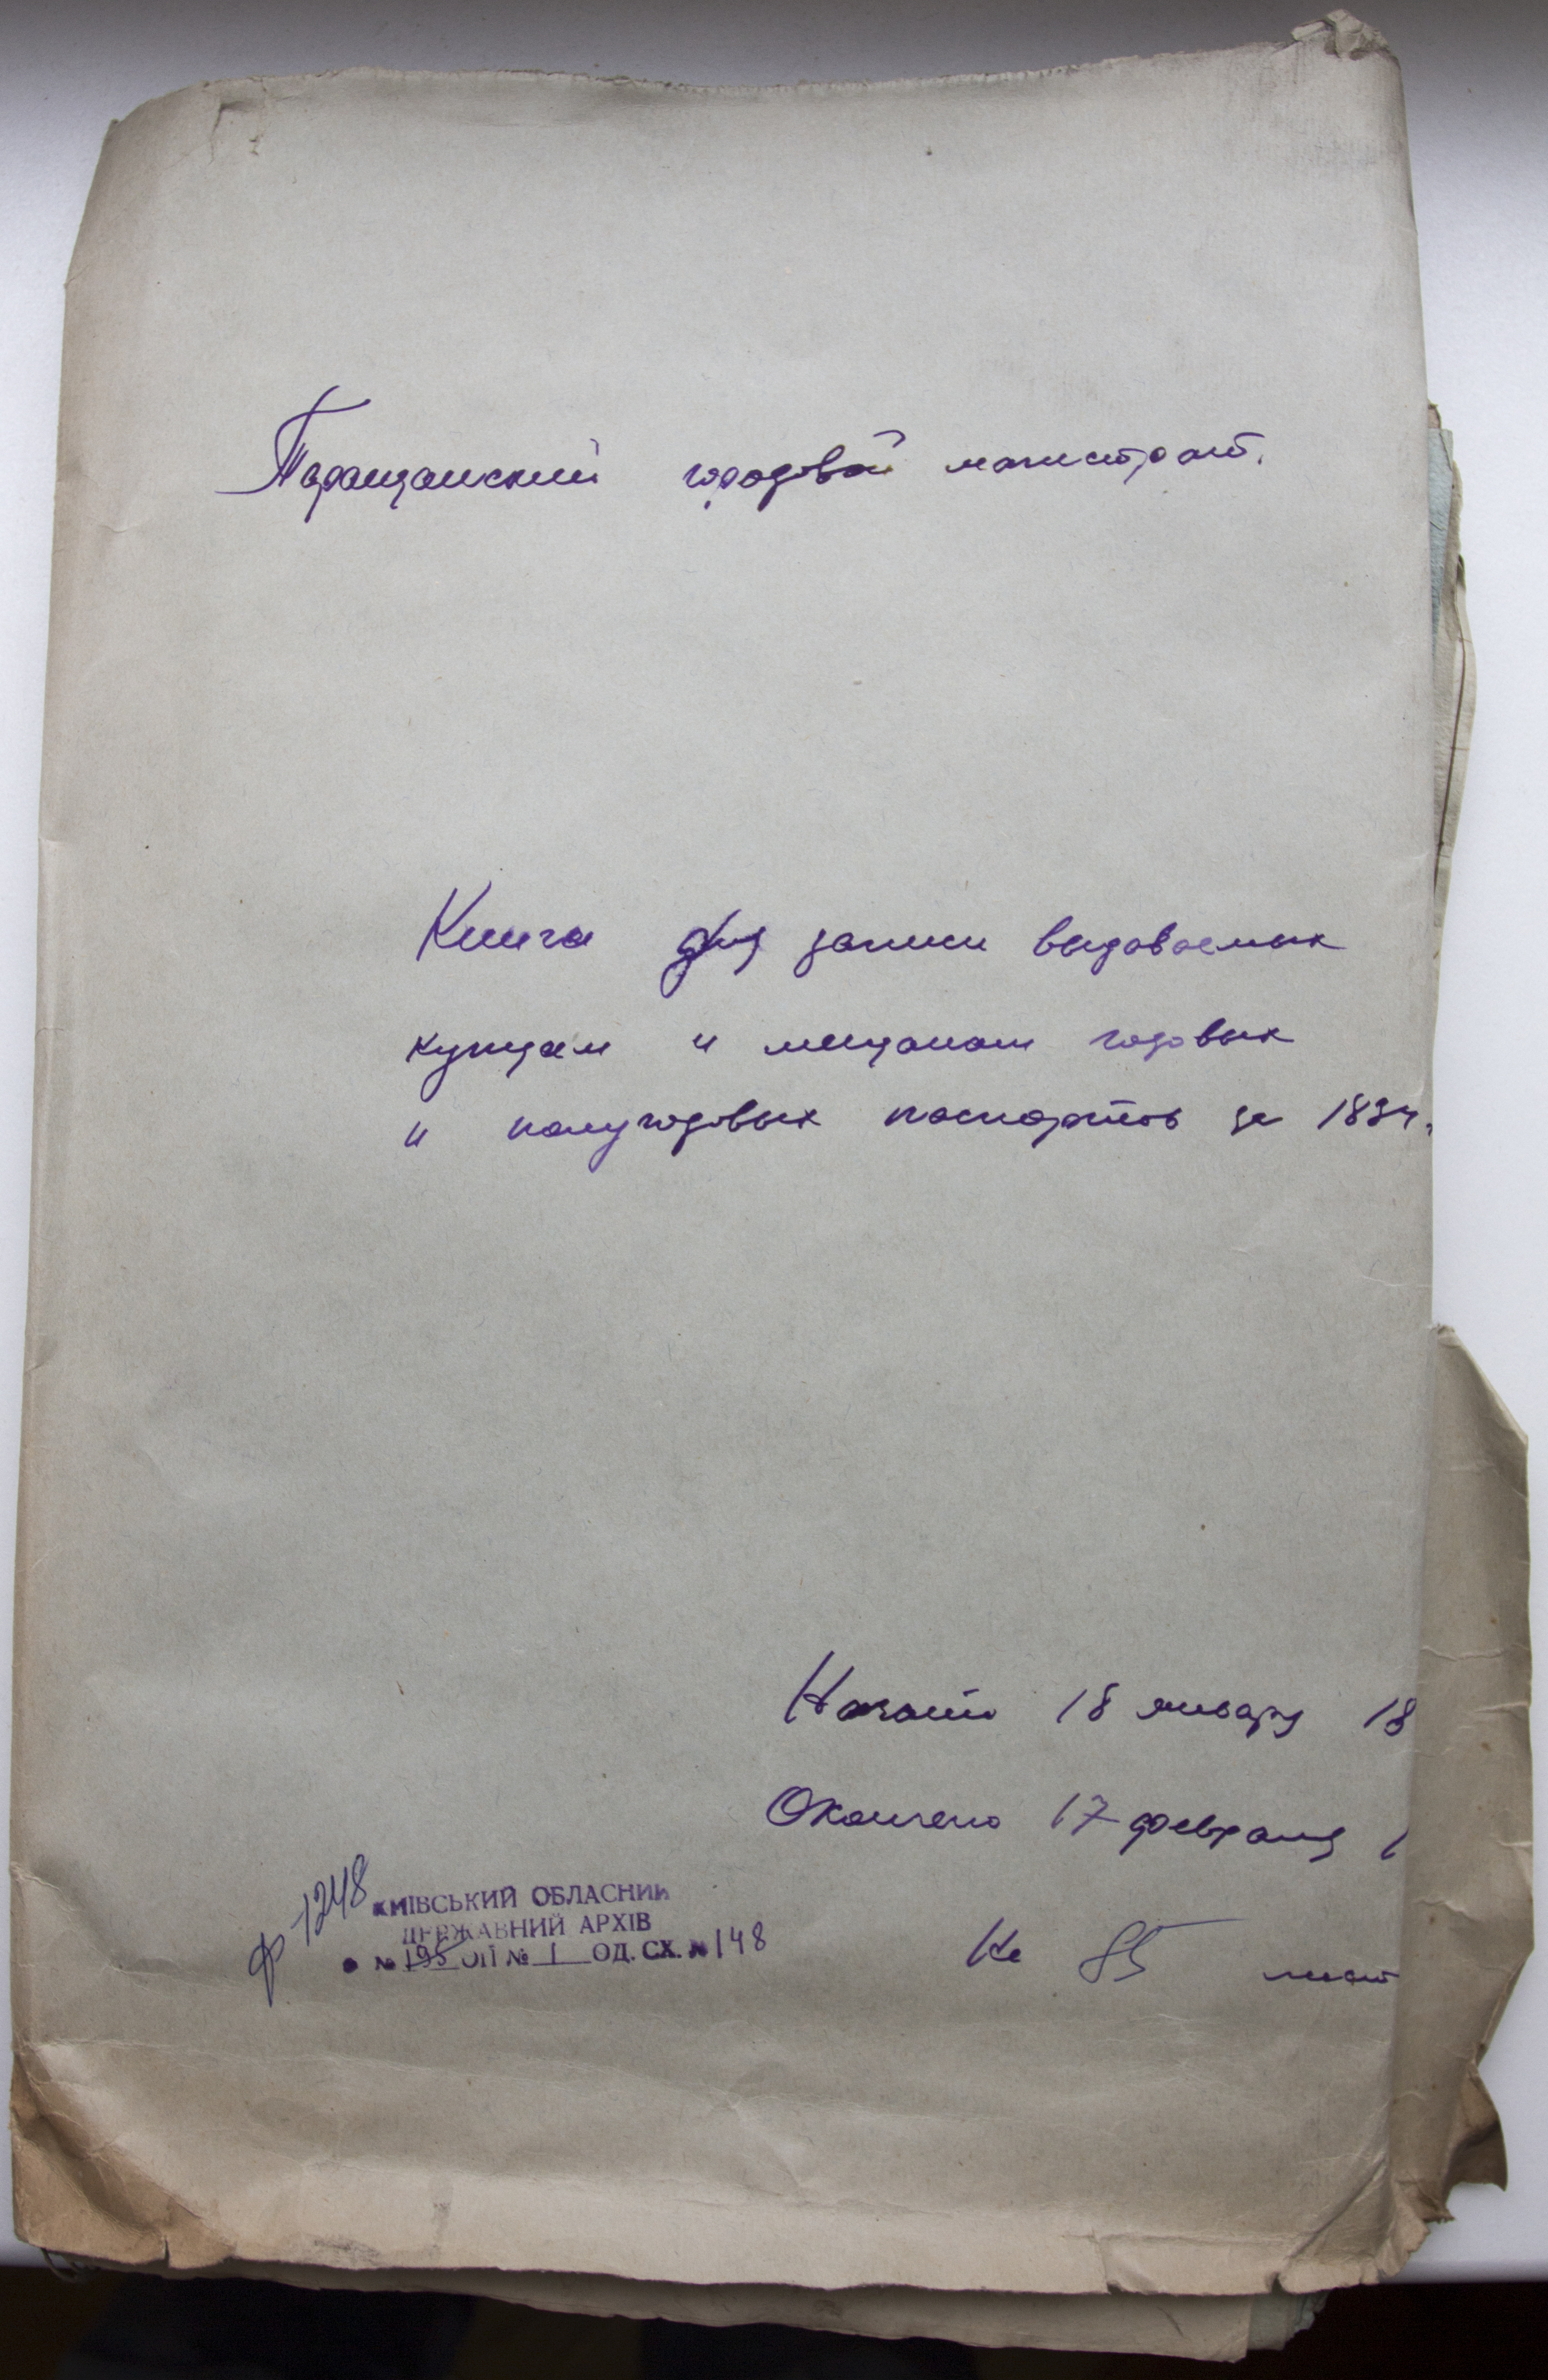 Таращанский городовой магистрат.
Книга для записи выдаваемых
купцам и мещанам годовых
и полугодовых паспортов за 1834.
Начато 18 января 18
Окончено 17 февраля 1
Ф 1248
КИЇВСЬКИЙ ОБЛАСНИЙ
ДЕРЖАВНИЙ АРХІВ
№ 195 ОП № 1 ОД. СХ. № 148
На 85 лист